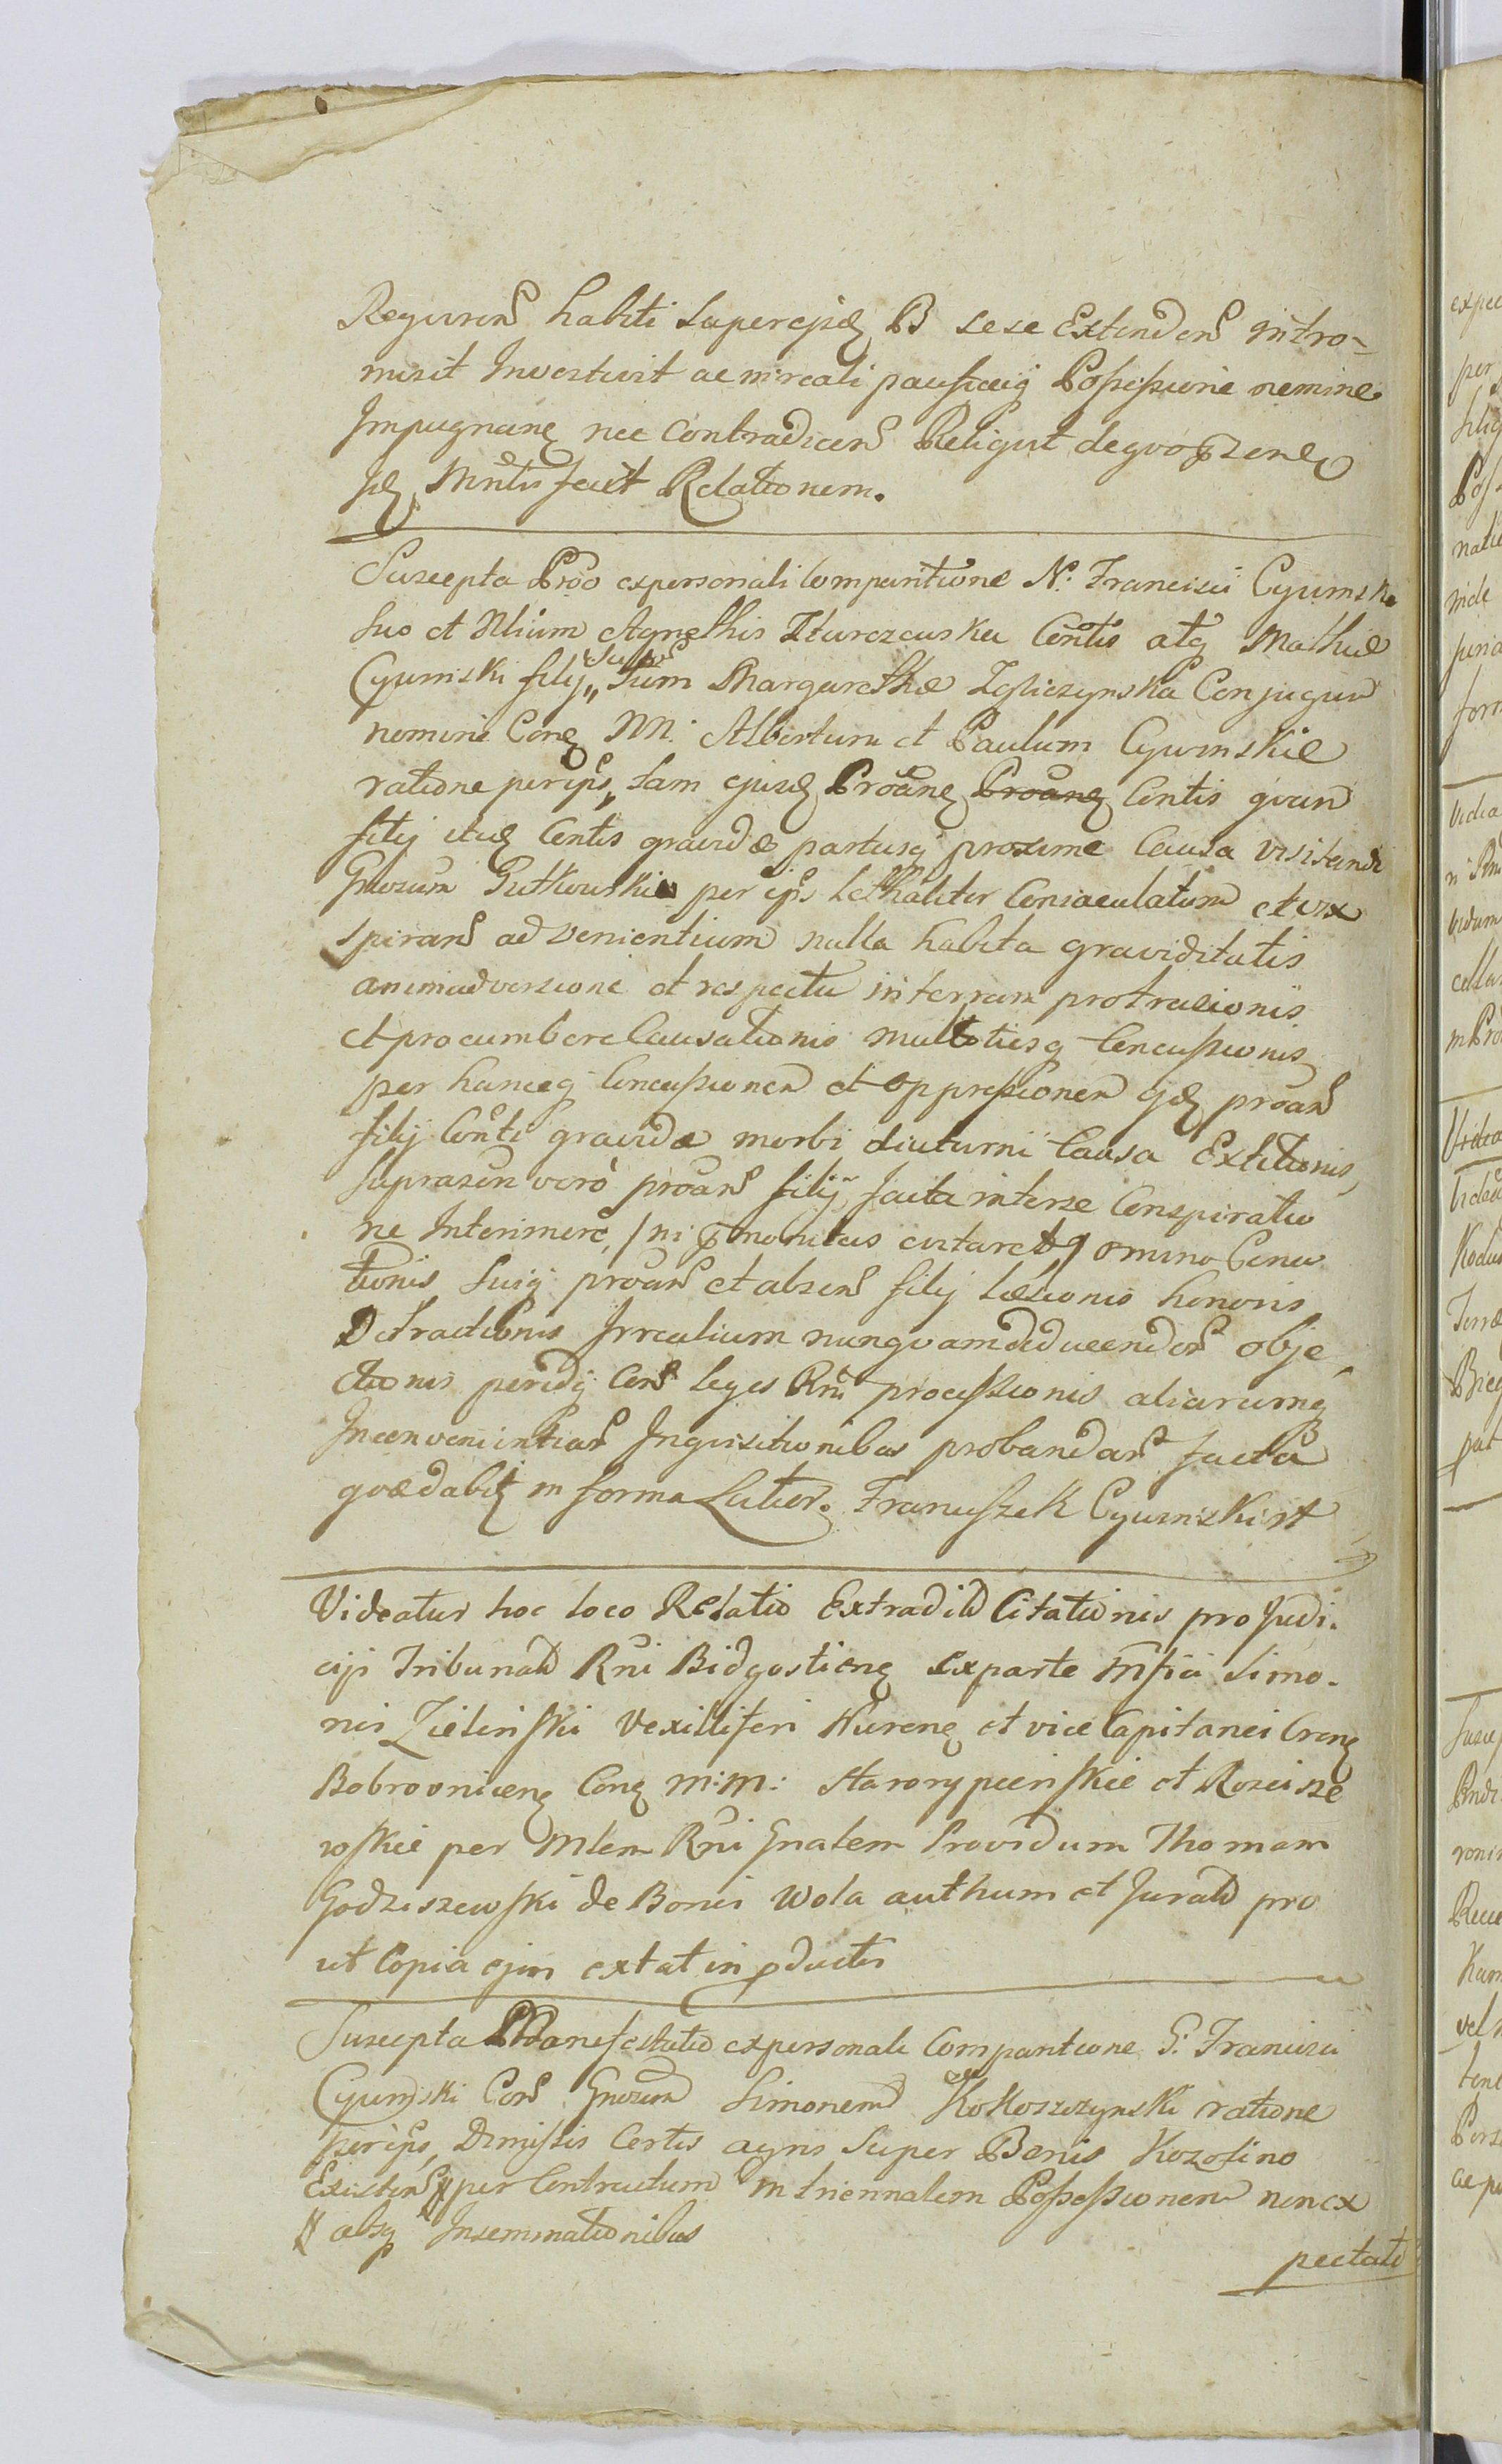 Reguren habiti super ejsd B sese Extenden intro-
misit Investivit ac in reali pacificaq Possessione nemine
Impugnane nec Contradicen Reliqvit de qvo
Mntis fecit Relationem.
Suscepta Prõo ex personali Comparitione N: Francisci Cyumski
suo et Nlium Agnethis Centis atq Mathiæ
Cyumski filij, tum Margarethæ Zgliczynska Conjugum
nomine Conq NN: Albertum et Paulum Cywinskie
ratione per ips, tam ejusd Prõanq Prõanq Centis qvam
filij itid Centis gravidæ partusq proxime Causa visitandi
Gnosum Gutkowski per ips lethaliter Conjaculatum et vix
spiran advenientium nulla habita graviditatis
animadversione et respectu in terram protractionis
et procumbere Causationis multotiesq Concussionis
per hancq Concussionem et oppressionem ejsd proan
filij Conti gravidæ morbi diuturni Causa Extitionis,
suprascri vero proan filij, facta inter se Conspiratio
ne Interimere, /ni monitus evitaret/ omino Cona
tionis suiq proan et absen filij læsionis honoris
Detractionis Irrealium nunqvam deducenden obje
ctionis peridq Cens leges Rni processionis aliarumq
Inconvenientiar Inqvisitionibus probandar facta
qvædabit in forma Latior. Franciszek Cywinski
Videatur hoc loco Relatio Extradit Citationis pro Judi.
cijs Tribunal Rni Bidgostienq Ex parte Mfici Simo-
nis Zielinski Vexilliferi Wurenq et vice Capitanei Crenq
Bobrovnicenq Conq M:M: Starorypienskie et Roscisze
wskie per Mlem Rni Gnalem Providum Thomam
Godziszewski de Bonci Wola authum et Jurat pro
ut Copia ejus extat in pductis
Suscepta Manifestatio ex personali Comparitione G: Francisci
Cyumski Con Gnosum Simonem Kokoszczynski ratione
per ips, Dimissis Certis agris super Bonis Kozolino
Existen # per Contractum in triennalem Possessionem non ex
# absq Inseminationibus
pectato